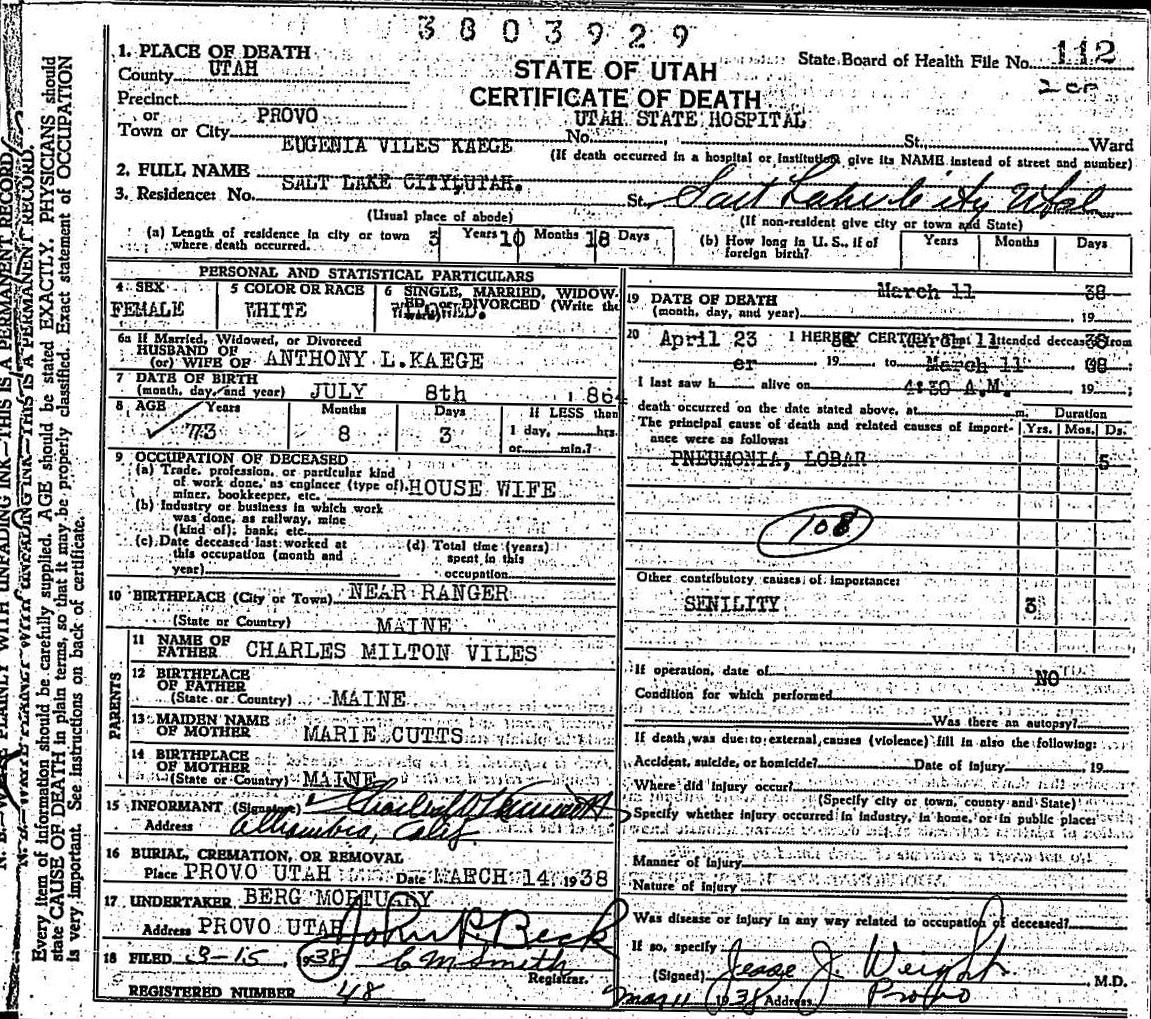 3803929
1. PLACE OF DEATH
County UTAH
STATE OF UTAH
State Board of Health File No. 112
CERTIFICATE OF DEATH
Precinct
or
Town or City PROVO
No. UTAH STATE HOSPITAL St., Ward
(If death occurred in a hospital or institution, give its NAME instead of street and number)
2. FULL NAME EUGENIA VILES KAEGE
3. Residence: No. SALT LAKE CITY, UTAH. St. Salt Lake City
(Usual place of abode)
(If non-resident give city or town and State)
(a) Length of residence in city or town
where death occurred. 3 Years 10 Months 18 Days
(b) How long in U. S., if of
foreign birth? Years Months Days
PERSONAL AND STATISTICAL PARTICULARS
4 SEX
FEMALE
5 COLOR OR RACE
WHITE
6 SINGLE, MARRIED, WIDOW-
ED, or DIVORCED (Write the
word) WIDOWED.
6a If Married, Widowed, or Divorced
HUSBAND OF
(or) WIFE OF ANTHONY L. KAEGE
7 DATE OF BIRTH
(month, day, and year) JULY 8th 1864
8 AGE Years Months Days If LESS than
73 8 3 1 day, hrs.
or min.?
9 OCCUPATION OF DECEASED
(a) Trade, profession, or particular kind
of work done, as engineer (type of),
miner, bookkeeper, etc. HOUSE WIFE
(b) Industry or business in which work
was done, as railway, mine
(kind of), bank, etc.
(c) Date deceased last worked at
this occupation (month and
year)
(d) Total time (years)
spent in this
occupation
10 BIRTHPLACE (City or Town) NEAR RANGER
(State or Country) MAINE
PARENTS
11 NAME OF
FATHER CHARLES MILTON VILES
12 BIRTHPLACE
OF FATHER
(State or Country) MAINE
13 MAIDEN NAME
OF MOTHER MARIE CUTTS
14 BIRTHPLACE
OF MOTHER
(State or Country) MAINE
15 INFORMANT (Signature)
Address Alhambra, Calif
16 BURIAL, CREMATION, OR REMOVAL
Place PROVO UTAH Date MARCH 14 1938
17 UNDERTAKER BERG MORTUARY
Address PROVO UTAH John R. Beck
18 FILED 3-15, 1938 C M Smith
Registrar.
REGISTERED NUMBER 48
19 DATE OF DEATH
(month, day, and year) March 11 1938
20 I HEREBY CERTIFY, That I attended deceased from
April 23 19 to March 11 1938
I last saw her alive on March 11 1938;
death occurred on the date stated above, at 4:30 A.M. m.
The principal cause of death and related causes of import-
ance were as follows:
Duration
Yrs. Mos. Ds.
PNEUMONIA, LOBAR 5
108
Other contributory causes of importance:
SENILITY 3
If operation, date of NO
Condition for which performed
Was there an autopsy?
If death was due to external causes (violence) fill in also the following:
Accident, suicide, or homicide? Date of injury 19
Where did injury occur?
(Specify city or town, county and State)
Specify whether injury occurred in industry, in home, or in public place:
Manner of injury
Nature of injury
Was disease or injury in any way related to occupation of deceased?
If so, specify
(Signed) Jesse J. Weight, M.D.
Mar 11 1938 Address Provo
N. B.—WRITE PLAINLY WITH UNFADING INK—THIS IS A PERMANENT RECORD.
Every item of information should be carefully supplied. AGE should be stated EXACTLY. PHYSICIANS should
state CAUSE OF DEATH in plain terms, so that it may be properly classified. Exact statement of OCCUPATION
is very important. See instructions on back of certificate.